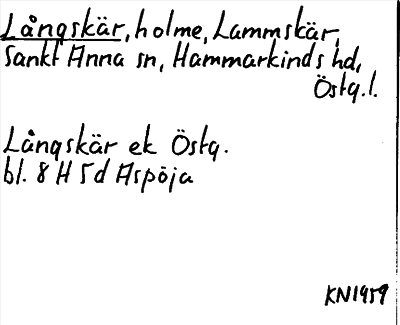 Långskär, holme, Lammskär,
Sankt Anna sn, Hammarkinds hd,
Östg.l.
Långskär ek Östg.
bl. 8 H 5d Aspöja
KN1959